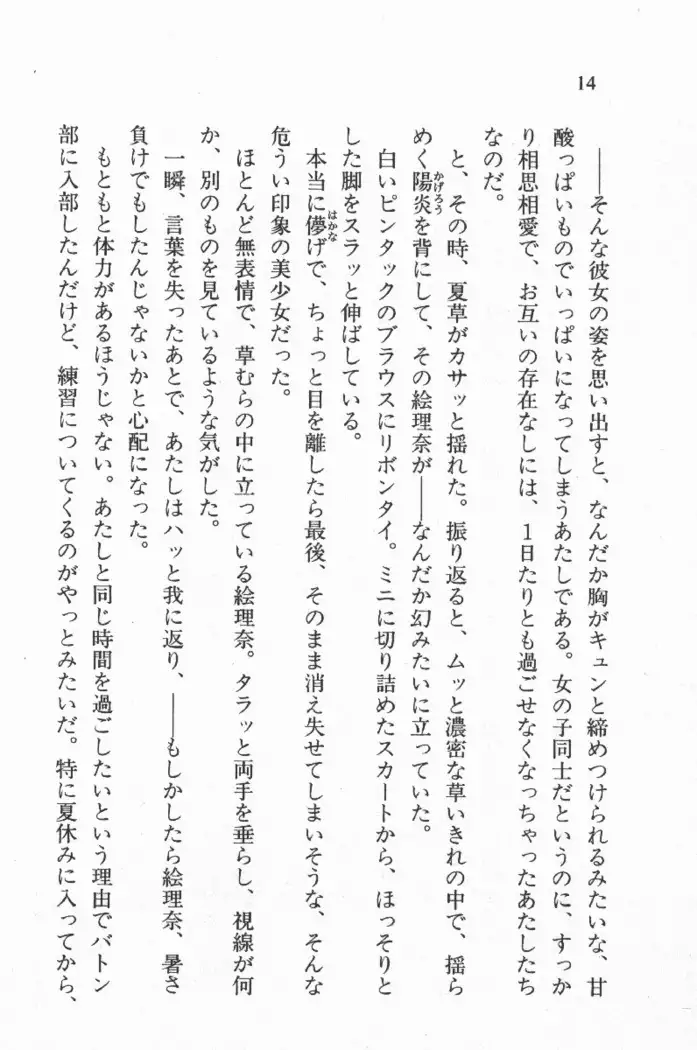 14
――そんな彼女の姿を思い出すと、なんだか胸がキュンと締めつけられるみたいな、甘
酸っぱいものでいっぱいになってしまうあたしである。女の子同士だというのに、すっか
り相思相愛で、お互いの存在なしには、1日たりとも過ごせなくなっちゃったあたしたち
なのだ。
と、その時、夏草がカサッと揺れた。振り返ると、ムッと濃密な草いきれの中で、揺ら
めく陽炎を背にして、その絵理奈が――なんだか幻みたいに立っていた。
かげろう
白いピンタックのブラウスにリボンタイ。ミニに切り詰めたスカートから、ほっそりと
した脚をスラッと伸ばしている。
本当に儚げで、ちょっと目を離したら最後、そのまま消え失せてしまいそうな、そんな
はかな
危うい印象の美少女だった。
ほとんど無表情で、草むらの中に立っている絵理奈。タラッと両手を垂らし、視線が何
か、別のものを見ているような気がした。
一瞬、言葉を失ったあとで、あたしはハッと我に返り、――もしかしたら絵理奈、暑さ
負けでもしたんじゃないかと心配になった。
もともと体力があるほうじゃない。あたしと同じ時間を過ごしたいという理由でバトン
部に入部したんだけど、練習についてくるのがやっとみたいだ。特に夏休みに入ってから、